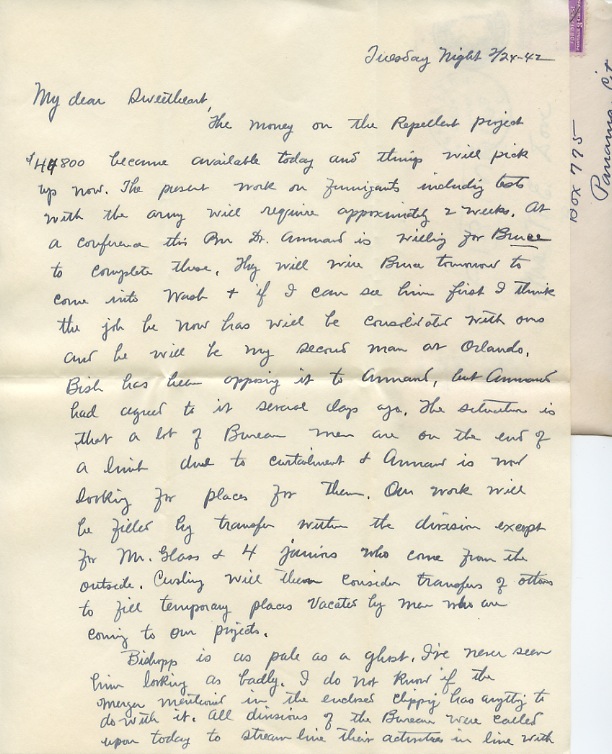 Tuesday Night 2/24-42
My dear Sweetheart,
The money on the Repellent project
$44800 became available today and things will pick
up now. The present work on fumigants including tests
with the army will require approximately 2 weeks. At
a conference this Pm Dr. Annand is willing for Bruce
to complete these. They will wire Bruce tomorrow to
come into Wash + if I can see him first I think
the job he now has will be consolidated with ours
and he will be my second man at Orlando.
Bish has been opposing it to Annand, but Annand
had agreed to it several days ago. The situation is
that a lot of Bureau men are on the end of
a limb due to curtailment + Annand is now
looking for places for them. Our work will
be filled by transfer within the division except
for Mr. Glass + 4 juniors who come from the
outside. Cushing will then consider transfers of others
to fill temporary places vacated by men who are
coming to our projects.
Bishopp is as pale as a ghost. I've never seen
him looking as badly. I do not know if the
merger mentioned in the enclosed clippig has anything to
do with it. All divisions of the Bureau were called
upon today to stream line their activities in line with
Box 775
Panama Cit